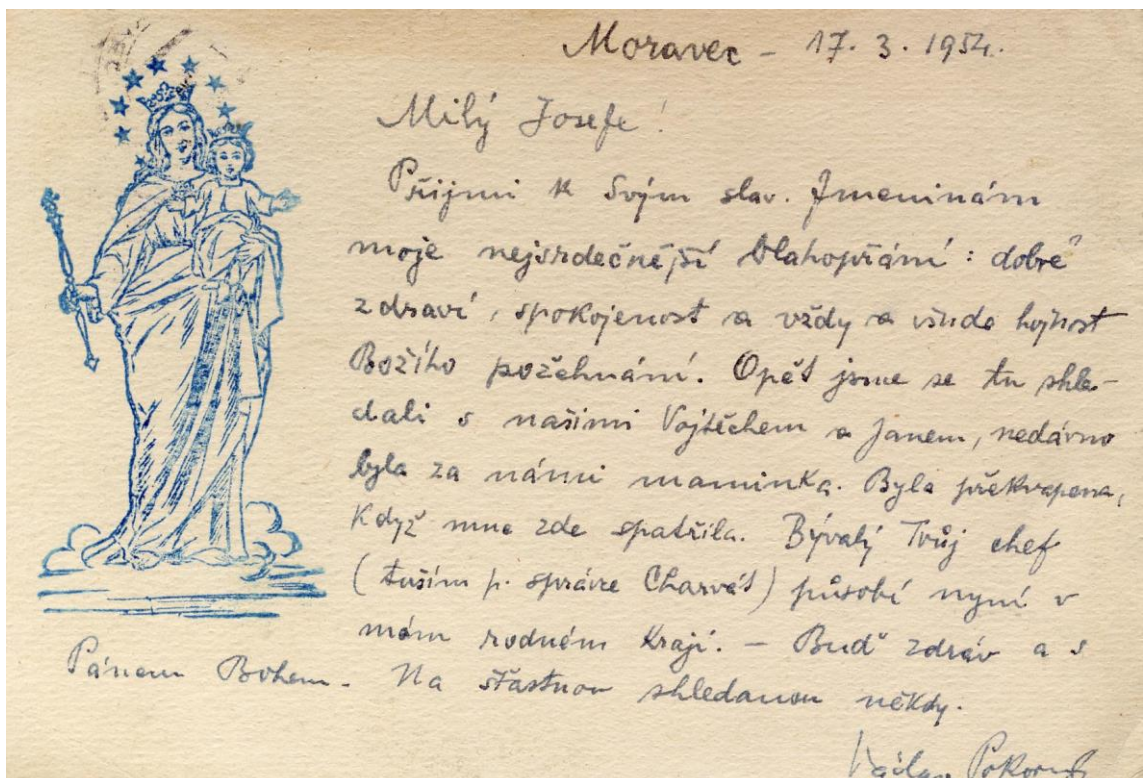 Moravec – 17. 3. 1954.
Milý Josefe!
Přijmi k Svým slav. Jmeninám
moje nejsrdečnější blahopřání: dobré
zdraví, spokojenost a vždy a všude hojnost
Božího požehnání. Opět jsme se tu shle-
dali s našimi Vojtěchem a Janem, nedávno
byla za námi maminka. Byla překvapena,
když mne zde spatřila. Bývalý Tvůj chef
(tuším p. správce Charvát) působí nyní v
mém rodném kraji. – Buď zdráv a s
Pánem Bohem. Na šťastnou shledanou někdy.
Václav Pokorný